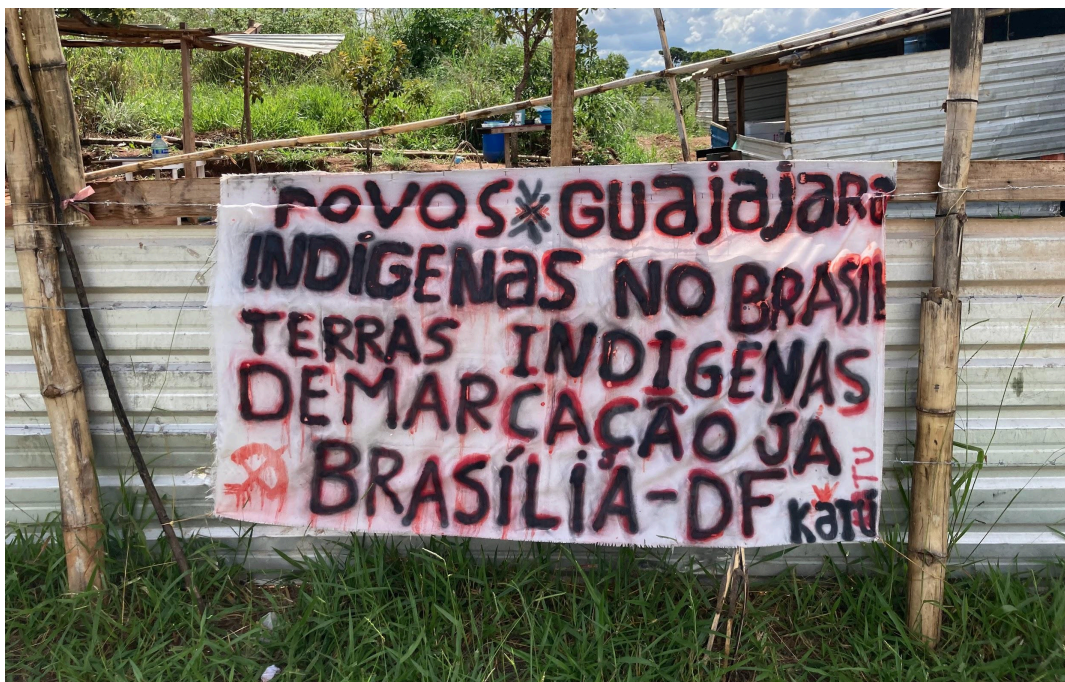 POVOS GUAJAJARA
INDÍGENAS NO BRASIL
TERRAS INDIGENAS
DEMARCAÇÃO JA
BRASÍLIA-DF
Katú
TU